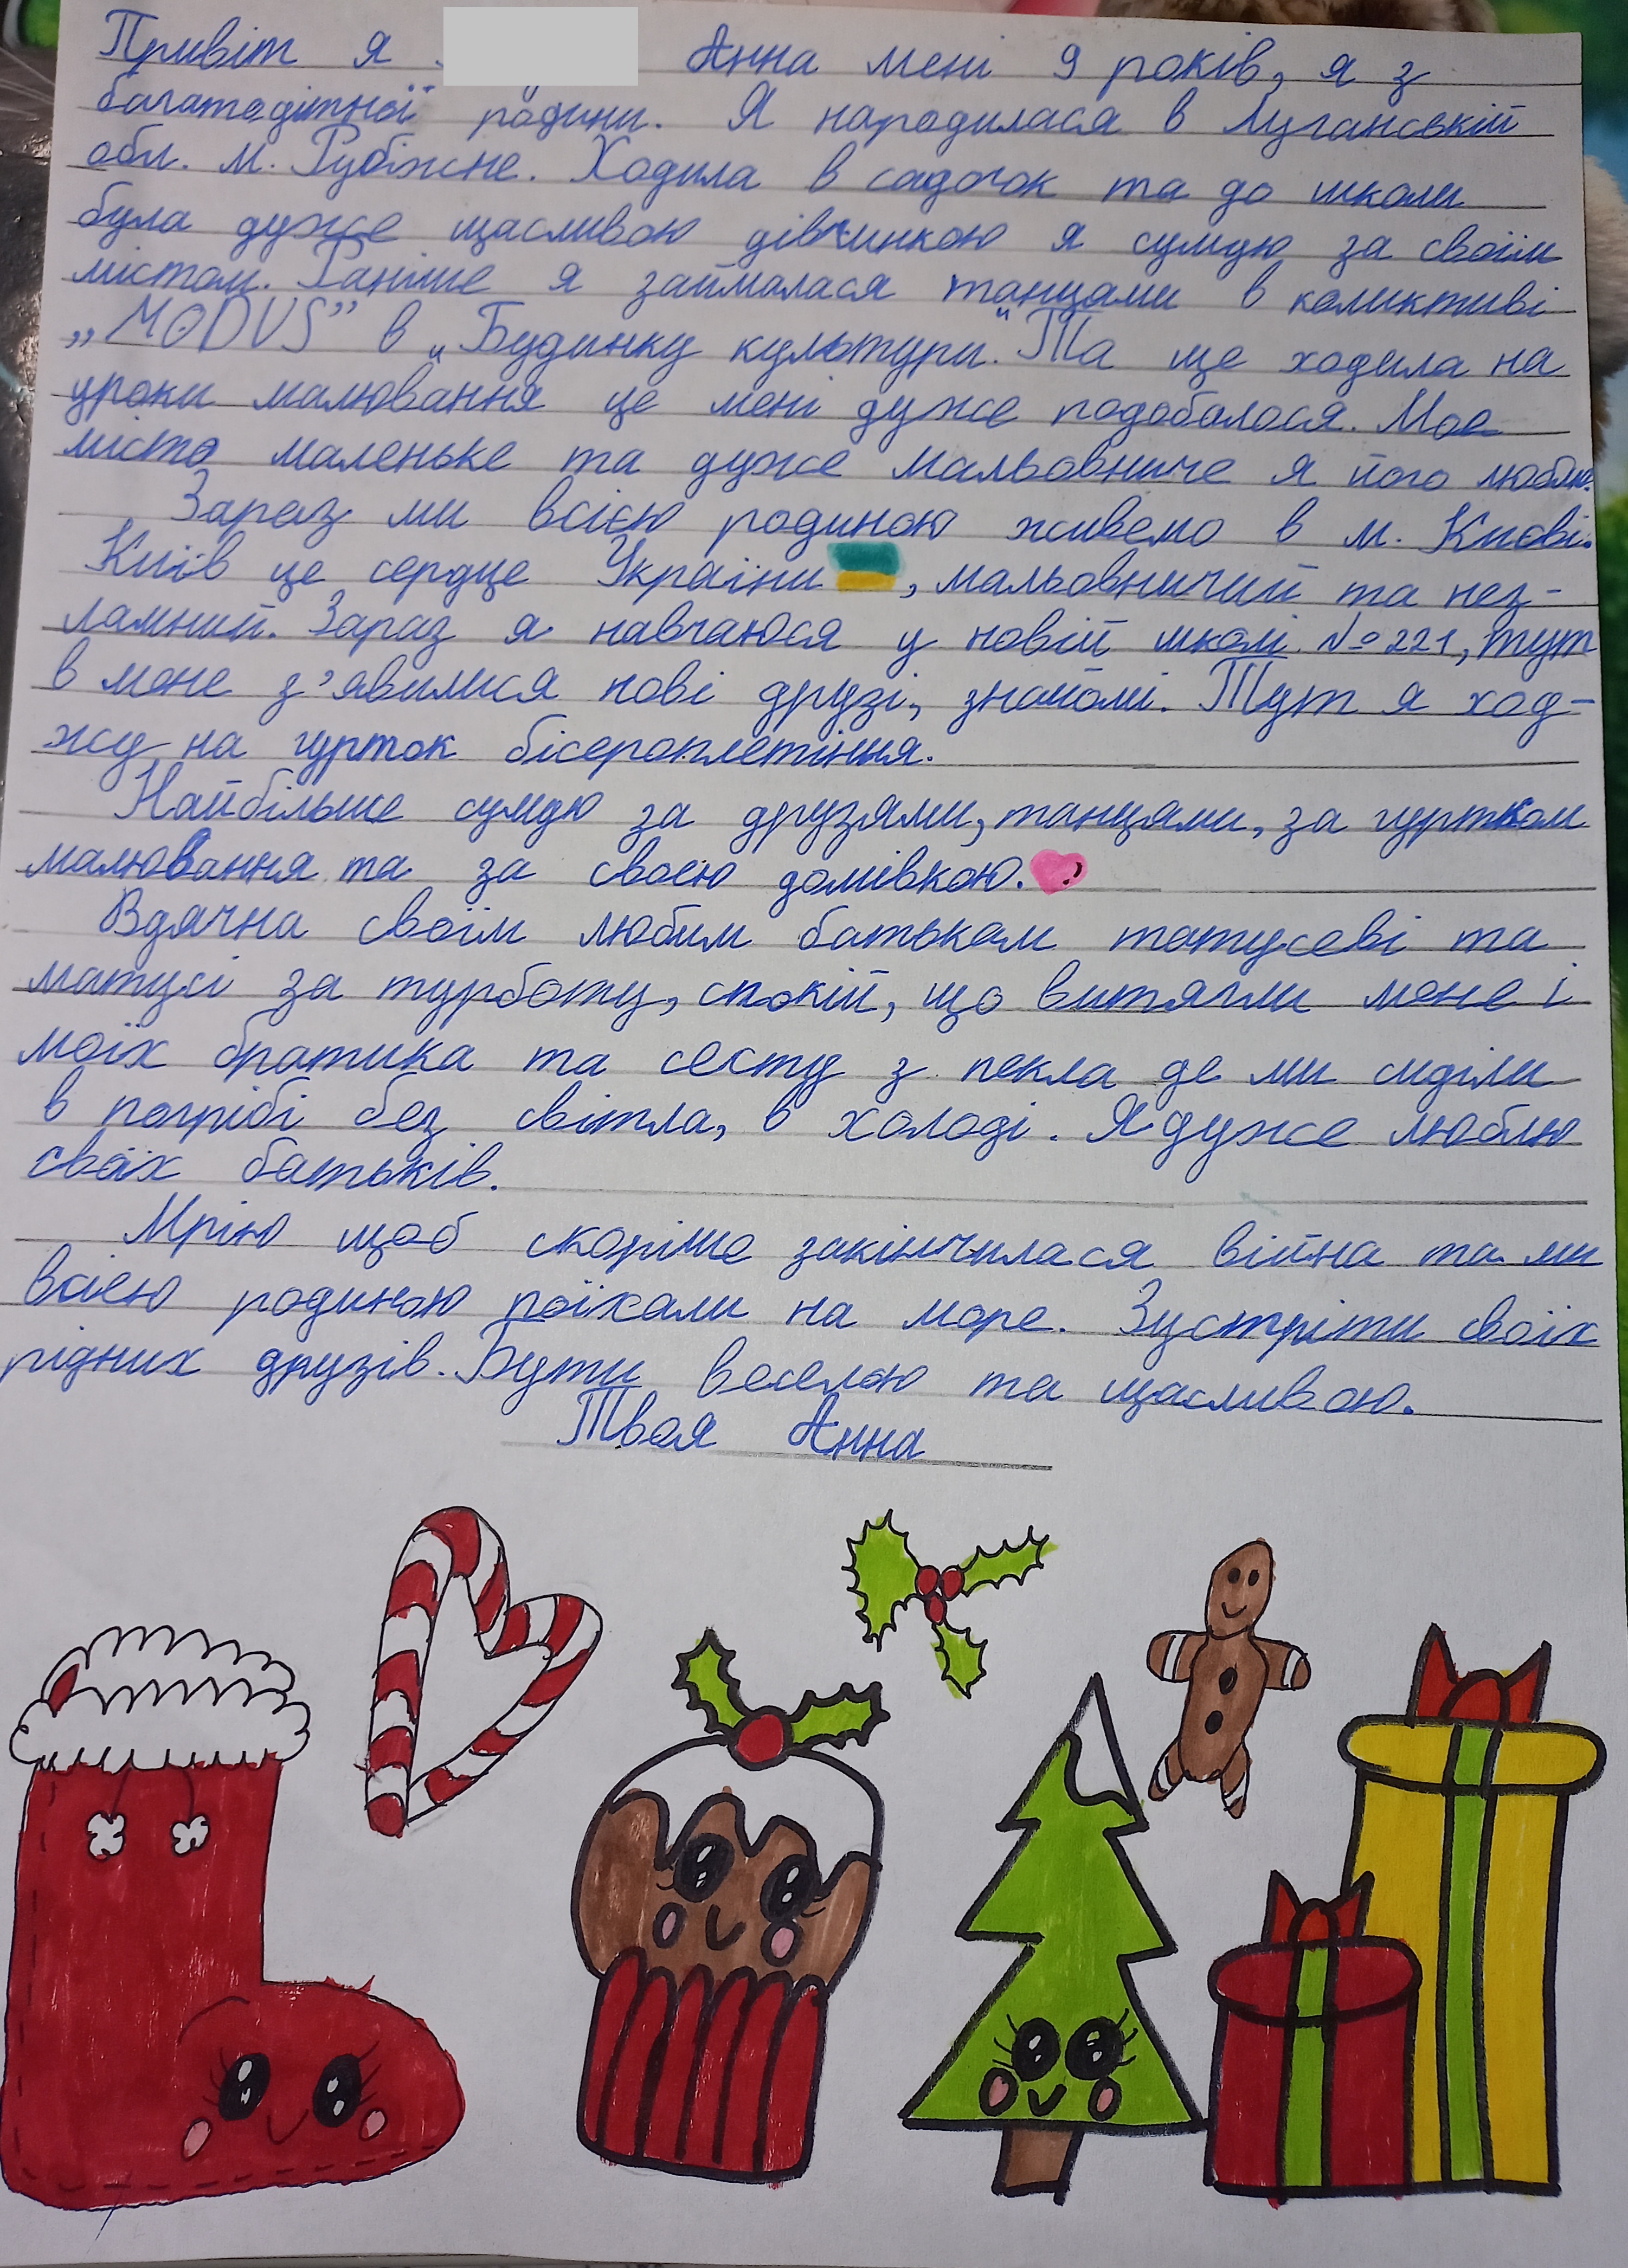 Привіт я Анна мені 9 років, я з
багатодітної родини. Я народилася в Луганській
обл. м. Рубіжне. Ходила в садочок та до школи
була дуже щасливою дівчинкою я сумую за своїм
містом. Раніше я займалася танцями в коликтиві
„MODUS” в „Будинку культури." Та ще ходила на
уроки малювання це мені дуже подобалося. Моє
місто маленьке та дуже мальовниче я його люблю.
Зараз ми всією родиною живемо в м. Києві.
Київ це сердце України, мальовничий та нез-
ламний. Зараз я навчаюся у новій школі №221, тут
в мене з'явилися нові друзі, знайомі. Тут я ход-
жу на гурток бісероплетіння.
Найбільше сумую за друзями, танцями, за гуртком
малювання та за своєю домівкою.
Вдячна своїм любим батькам татусеві та
матусі за турботу, спокій, що витягли мене і
моїх братика та сесту з пекла де ми сиділи
в погрібі без світла, в холоді. Я дуже люблю
своїх батьків.
Мрію щоб скоріше закінчилася війна та ми
всією родиною поїхали на море. Зустріти своїх
рідних друзів. Бути веселою та щасливою.
Твоя Анна